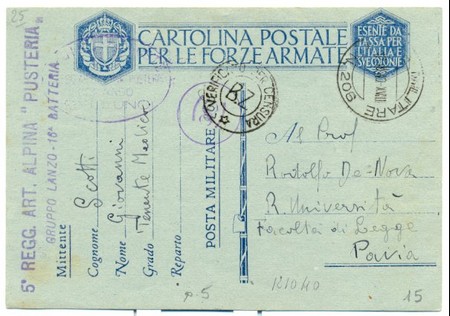 25
CARTOLINA POSTALE
PER LE FORZE ARMATE
ESENTE DA
TASSA PER
L'ITALIA E
SUE COLONIE
5° REGG. ART. ALPINA "PUSTERIA"
GRUPPO LANZO - 16ª BATTERIA
Mittente
Cognome Scotti
Nome Giovanni
Grado Tenente Medico
Reparto
POSTA MILITARE
VERIFICATO PER CENSURA
POSTA MILITARE
N. 206
Al Prof
Rodolfo De-Nova
R. Università
Facoltà di Legge
Pavia
p. 5
R1040
15